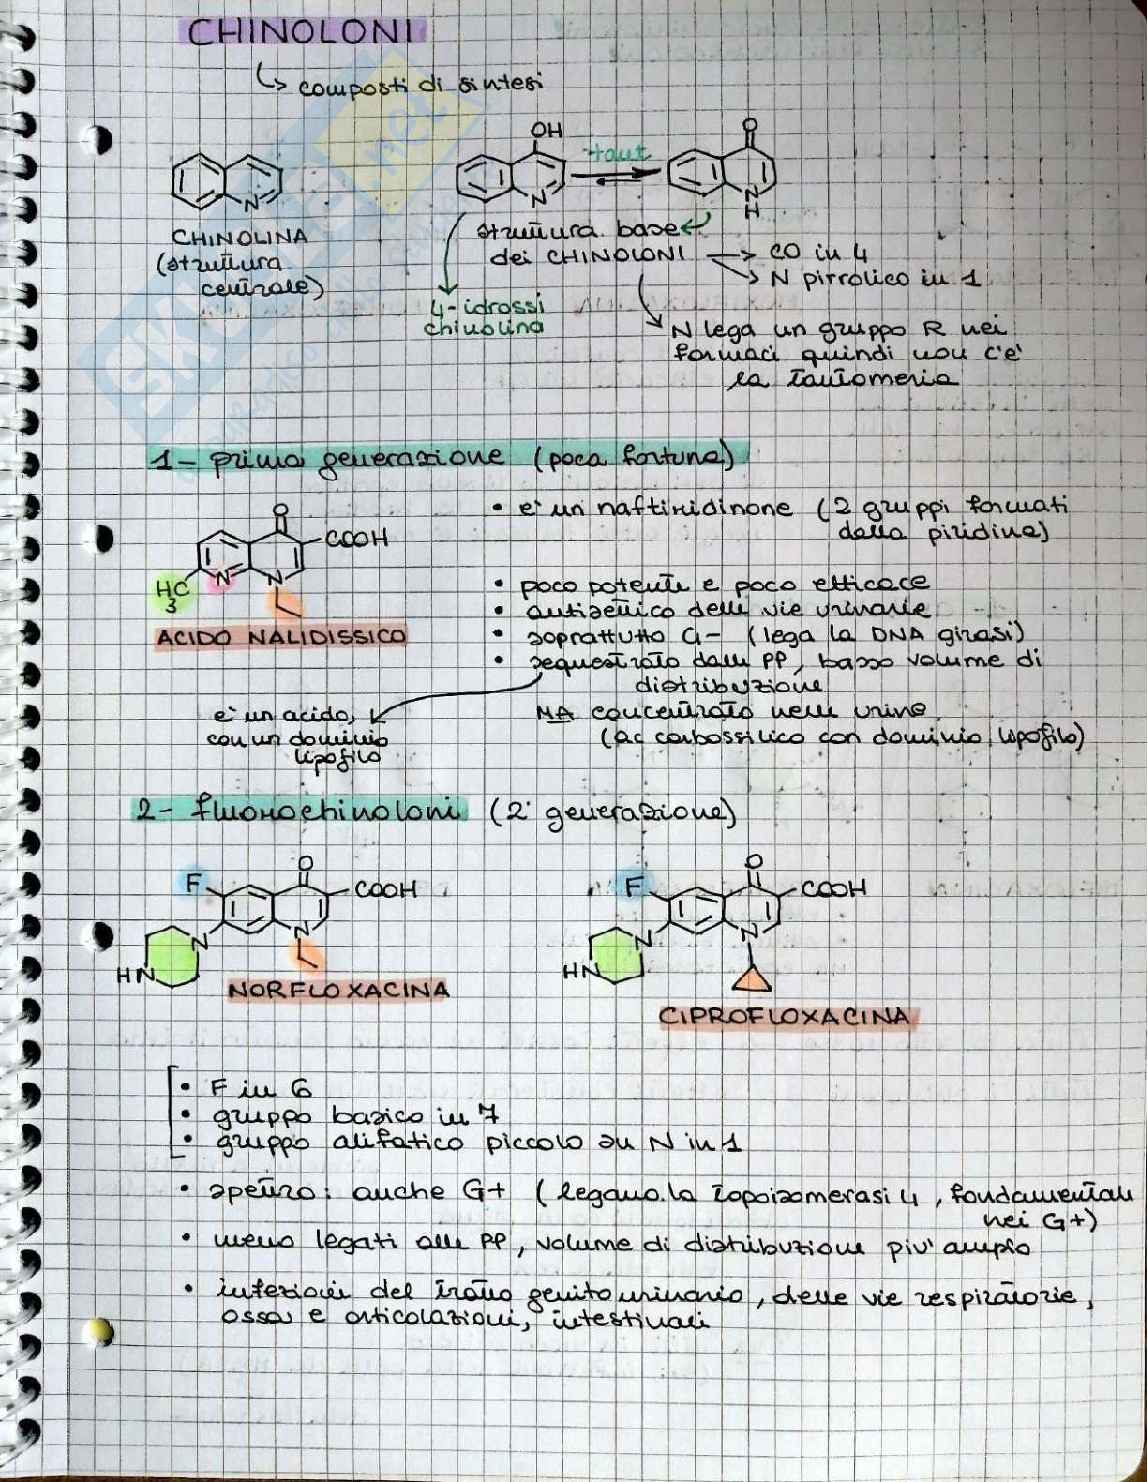 CHINOLONI
↳ composti di sintesi
OH
O
taut
N
N
N
H
CHINOLINA
(struttura
centrale)
struttura base
dei CHINOLONI → CO in 4
→ N pirrolico in 1
4-idrossi
chinolina
N lega un gruppo R nei
farmaci quindi non c'è
la tautomeria
1- prima generazione (poca fortuna)
O
COOH
H3C
N
N
ACIDO NALIDISSICO
• è un naftiridinone (2 gruppi formati
dalla piridina)
• poco potente e poco efficace
• antisettico delle vie urinarie
• soprattutto G- (lega la DNA girasi)
• sequestrato dalle PP, basso volume di
distribuzione
MA concentrato nelle urine
(ac carbossilico con dominio lipofilo)
è un acido,
con un dominio
lipofilo
2- fluorochinoloni (2ª generazione)
O
F
COOH
N
N
HN
NORFLOXACINA
O
F
COOH
N
N
HN
CIPROFLOXACINA
• F in 6
• gruppo basico in 7
• gruppo alifatico piccolo su N in 1
• spettro: anche G+ (legano la topoisomerasi 4, fondamentale
nei G+)
• meno legati alle PP, volume di distribuzione più ampio
• infezioni del tratto genitourinario, delle vie respiratorie,
ossa e articolazioni, intestinali